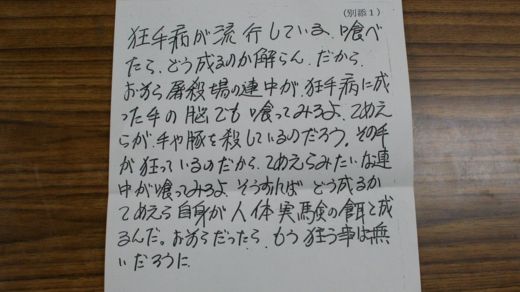 (別添１)
狂牛病が流行している、喰べ
たら、どう成るのか解らん。だから
おまえら屠殺場の連中が、狂牛病に成
った牛の脳でも喰ってみろよ、てめえ
らが、牛や豚を殺しているのだろう。その牛
が狂っているのだから、てめえらみたいな連
中が喰ってみろよ、そうすれば どう成るか
てめえら自身が人体実験の餌と成
るんだ。おまえらだったら、もう狂う事は無
いだろうに